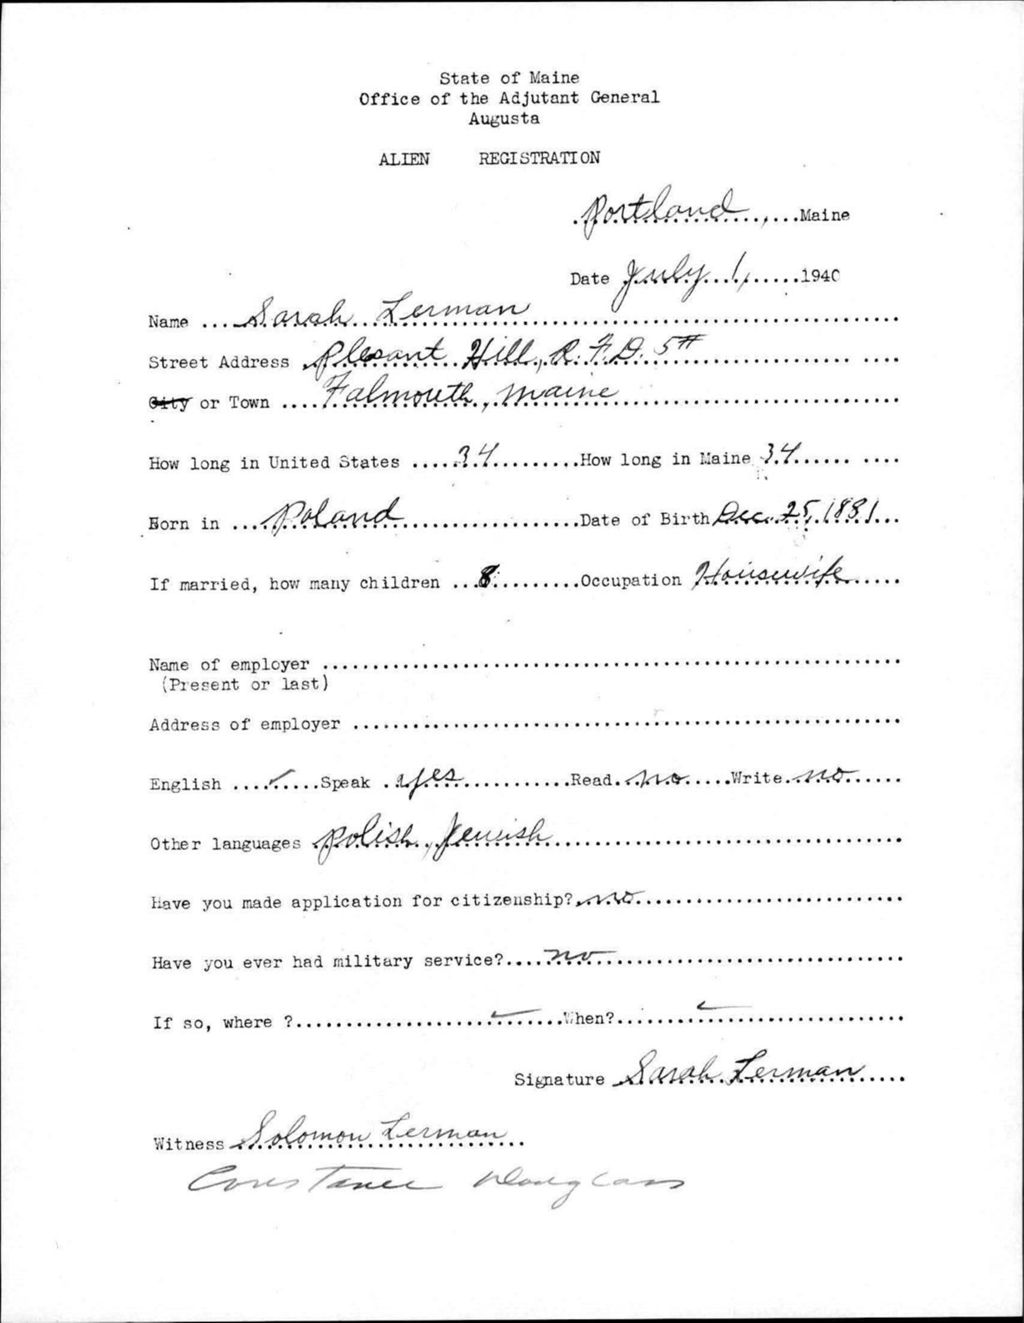 State of Maine
Office of the Adjutant General
Augusta
ALIEN REGISTRATION
Portland, Maine
Date July 1, 1940
Name Sarah Lerman
Street Address Plesant Hill, R.F.D. 5#
City or Town Falmouth, Maine
How long in United States 34 How long in Maine 34
Born in Poland Date of Birth Dec. 25, 1881
If married, how many children 8 Occupation Housewife
Name of employer
(Present or last)
Address of employer
English ✓ Speak yes Read no Write no
Other languages Polish, Jewish
Have you made application for citizenship? no
Have you ever had military service? no
If so, where ? ✓ When? ✓
Signature Sarah Lerman
Witness Solomon Lerman
Constance Douglass